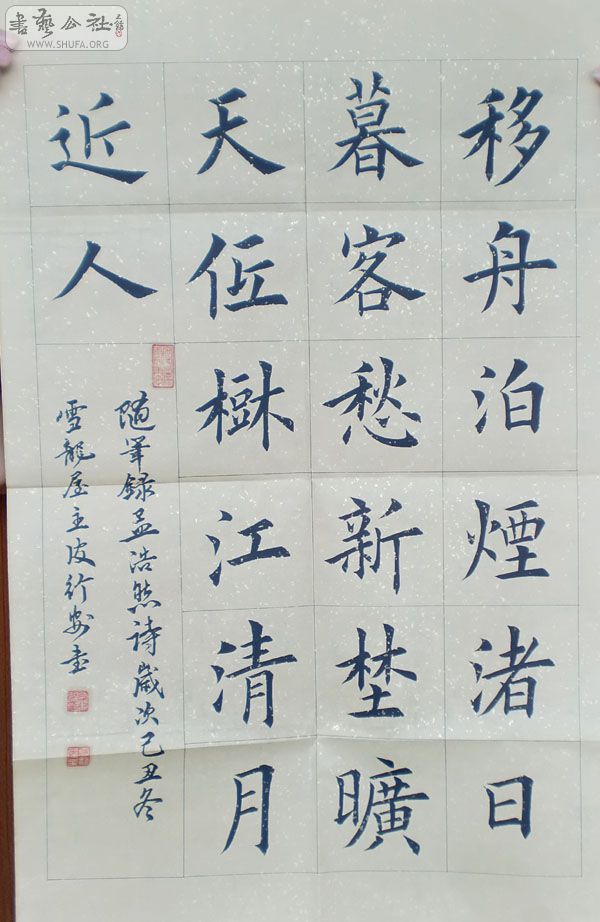 書藝公社
WWW.SHUFA.ORG
移舟泊煙渚日
暮客愁新埜曠
天仾樹江清月
近人
随筆録孟浩然詩歲次己丑冬
雪龍屋主皮行书